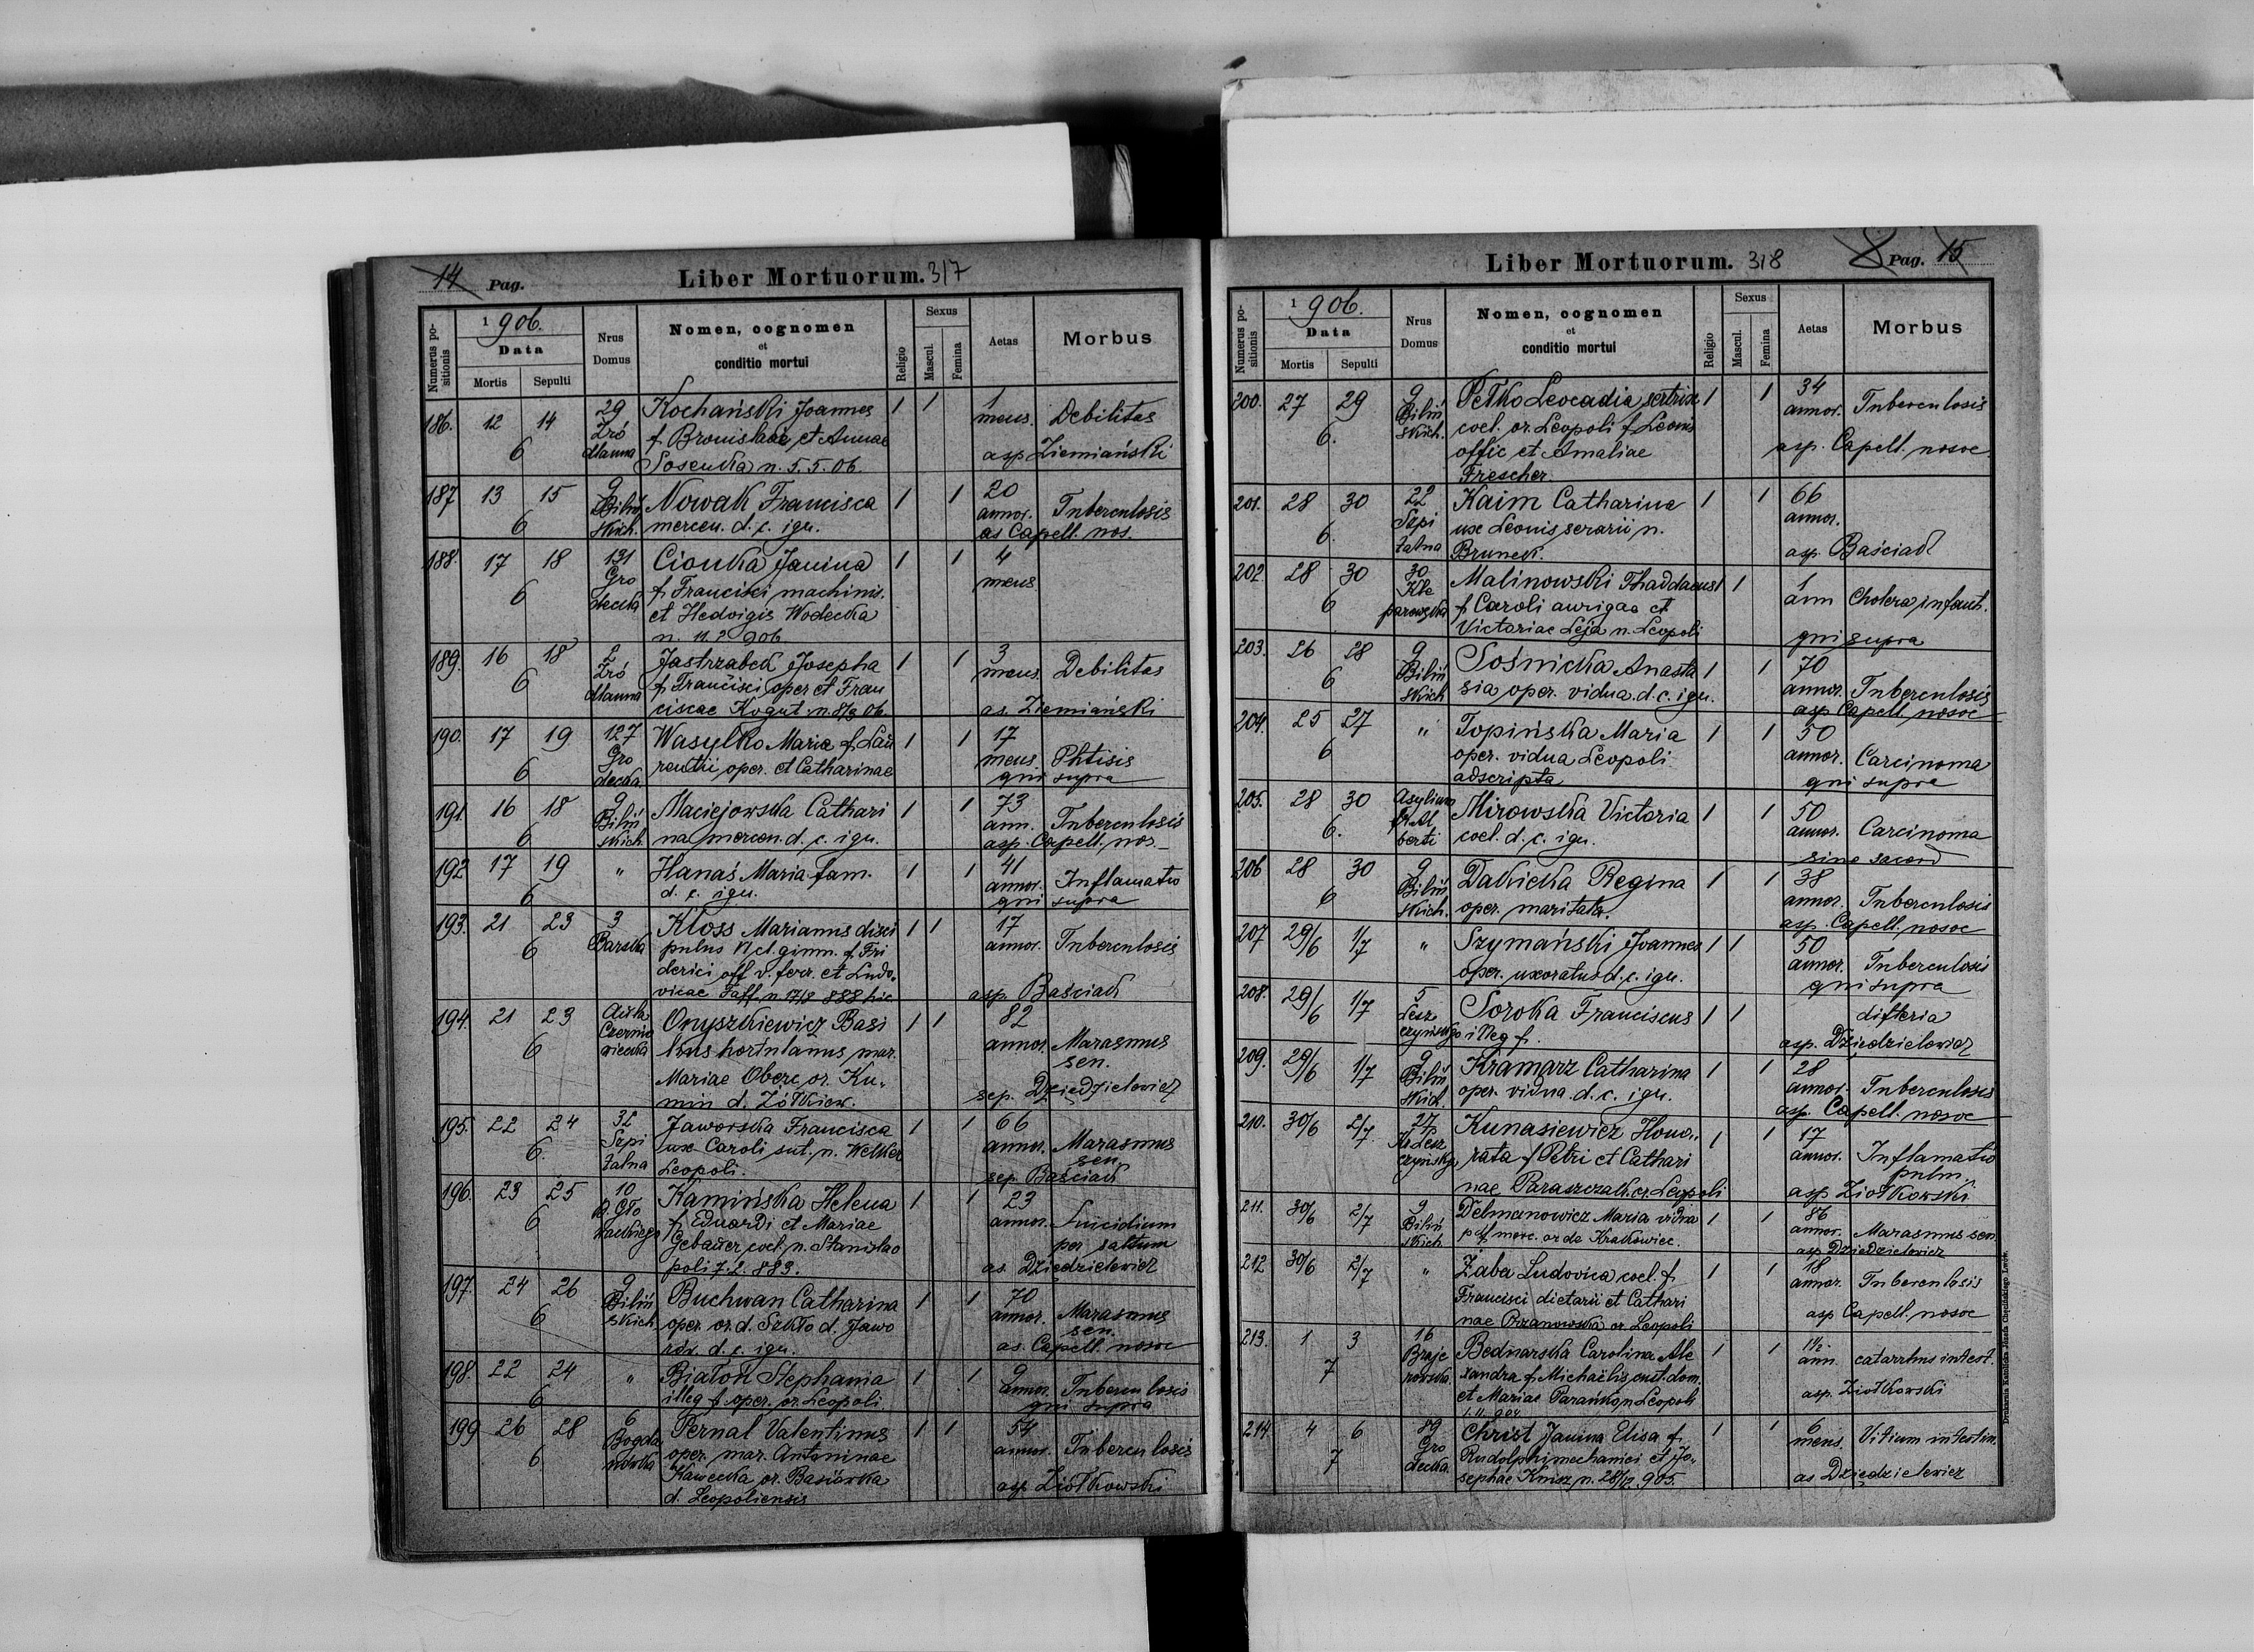 14 Pag. Liber Mortuorum. 317
Numerus positionis
1906.
Data
Mortis Sepulti
Nrus Domus
Nomen, cognomen
et
conditio mortui
Religio
Sexus
Mascul. Femina
Aetas
Morbus
186. 12 14 29 Kochański Joannes 1 1 1
6 Zró f. Bronislai et Annae mens. Debilitas
dlanna Sosenka n. 5.5.06. asp Ziemiański
187 13 15 9 Nowak Francisca 1 1 20
6 Biliń mercen. d. c. ign. annor. Tuberculosis
skich. as Capell. nos.
188. 17 18 131 Cionka Janina 1 1 4
6 Gro f. Francisci machinis. mens
decka et Hedvigis Wodecka
n. 11.2 906
189. 16 18 2 Jastrzabek Josepha 1 1 3
6 Zró f. Francisci oper et Fran mens. Debilitas
dlanna ciscae Kogut n. 8/3 06. as. Ziemiański
190. 17 19 127 Wasylko Maria f. Lau 1 1 17
6 Gro rentii oper. et Catharinae mens. Phtisis
decka. qui supra
191. 16 18 9 Maciejowska Cathari 1 1 73
6 Biliń na mercen. d. c. ign. ann. Tuberculosis
skich. asp. Capell. nos
192 17 19 " Hanaś Maria fam. 1 1 41
6 d. c. ign. annor. Inflamatio
qui supra
193. 21 23 3 Kloss Marianus disci 1 1 17
6 Barska pulus VI cl. gimn. f. Fri annor. Tuberculosis
derici off v. ferr. et Ludo
vicae Faff. n 17/8 888 hic asp. Baściak
194. 21 23 Onyszkiewicz Basi 1 1 82
6 Czernio lius hortulanus mar. annor. Marasmus
wiecka Mariae Obere or. Ku sen.
min d. Żółkiew. sep. Dziedzielewicz
195. 22 24 32 Jaworska Francisca 1 1 66
6. Szpi ux Caroli sut. n. Welker annor. Marasmus
talna Leopoli. sen.
sep Baściak
196. 23 25 10 Kamińska Helena 1 1 23
6 f. Eduardi et Mariae annor. Suicidium
Gebauer coel. n. Stanislao per saltum
poli 7.2. 883. as. Dziedzielewicz
197. 24 26 9 Buchwan Catharina 1 1 70
6 Biliń oper. or. d. Szkło d. Jawo annor. Marasmus
skich. rów d. c. ign. sen.
as. Capell. nosoc
198. 22 24 " Białoń Stephania 1 1 9
6 illeg f. oper. or. Leopoli. annor. Tuberculosis
qui supra
199 26 28 6 Pernal Valentinus 1 1 54
6 Bogda oper. mar. Antoninae annor. Tuberculosis
nówka Kawecka or. Basiówka
d. Leopoliensis asp Ziołkowski
Liber Mortuorum. 318 Pag. 15
Numerus positionis
1906.
Data
Mortis Sepulti
Nrus Domus
Nomen, cognomen
et
conditio mortui
Religio
Sexus
Mascul. Femina
Aetas
Morbus
200. 27 29 9 Petko Leocadia sertrix 1 1 34
6. Biliń coel. or. Leopoli f. Leonis annor. Tuberculosis
skich. offic et Amaliae asp. Capell. nosoc.
Frescher.
201. 28 30 22 Kaim Catharina 1 1 66
6. Szpi ux Leonis serarii n. annor.
talna Brunek. asp. Baściak
202. 28 30 30 Malinowski Thaddaeus 1 1 1
6 Kle f. Caroli aurigae et ann Cholera infant.
parowska Victoriae Leja n. Leopoli qui supra
203. 26 28 9 Sośnicka Anasta 1 1 70
6 Biliń sia oper. vidua. d. c. ign. annor. Tuberculosis
skich asp Capell nosoc
204. 25 27 " Topińska Maria 1 1 50
6 oper. vidua Leopoli annor. Carcinoma
adscripta qui supra
205. 28 30 Asylium Mirowska Victoria 1 1 50
6. fr. Al coel. d. c. ign. annor. Carcinoma
berti sine sacerd
206 28 30 9 Dakicka Regina 1 1 38
6 Biliń oper. maritata. annor. Tuberculosis
skich. asp. Capell. nosoc
207 29/6 1/7 " Szymański Joannes 1 1 50
oper. uxoratus d. c. ign. annor. Tuberculosis
qui supra
208. 29/6 1/7 5 Soroka Franciscus 1 1 difteria
Lesz illeg f.
czyńskgo asp. Dziedzielewicz
209. 29/6 1/7 9 Kramarz Catharina 1 1 28
Biliń oper. vidua. d. c. ign. annor. Tuberculosis
skich. asp. Capell. nosoc
210. 30/6 2/7 27 Kunasiewicz Hono 1 1 17
rata f. Petri et Cathari annor. Inflamatio
nae Paraszczak or. Leopoli pulm.
asp Ziołkowski
211. 30/6 2/7 9 Delmanowicz Maria vidua 1 1 86
Biliń merc. or de Krakowiec. annor. Marasmus sen.
skich asp Dziedzielewicz
212 30/6 2/7 " Żaba Ludovica coel. f. 1 1 18
Francisci dietarii et Cathari annor. Tuberculosis
nae Chrzanowska or Leopoli asp Capell. nosoc
213. 1 3 16 Bednarska Carolina Ale 1 1 1½
7 Braje xandra f. Michaëlis cust. dom. ann. catarrhus intest.
rowska. et Mariae Parańko n Leopoli asp. Ziołkowski
1.11 904
214. 4 6 89 Christ Janina Elisa f. 1 1 6
7 Gro Rudolphi mechanici et Jo mens. Vitium intestin.
decka. sephae Knisz n. 28/12 905. as Dziedzielewicz